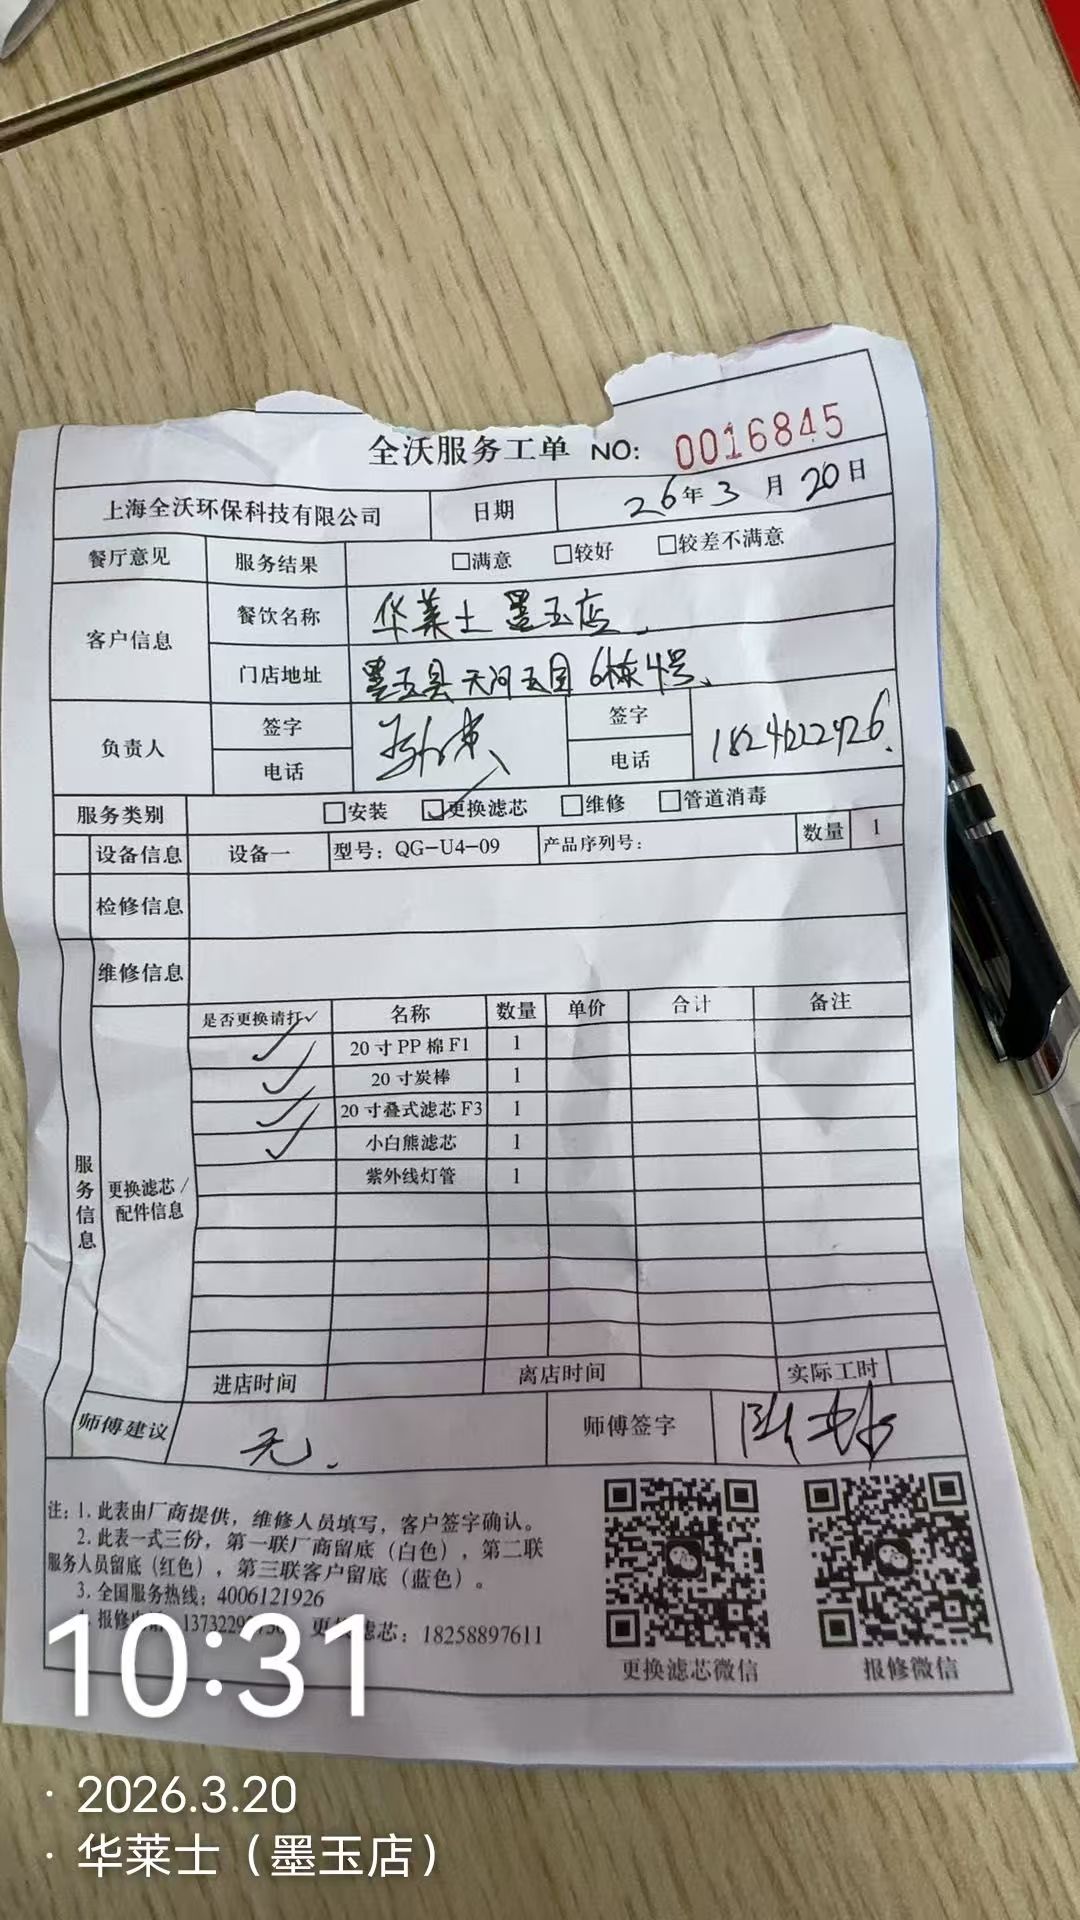 全沃服务工单 NO: 0016845
上海全沃环保科技有限公司 日期 26年3月20日
餐厅意见 服务结果 □满意 □较好 □较差不满意
客户信息 餐饮名称 华莱士 墨玉店.
门店地址 墨玉县天河玉园6栋4号、
负责人 签字 签字
电话 电话
服务类别 □安装 ☑更换滤芯 □维修 □管道消毒
设备信息 设备一 型号：QG-U4-09 产品序列号： 数量 1
检修信息
维修信息
是否更换请打✓ 名称 数量 单价 合计 备注
✓ 20寸PP棉F1 1
✓ 20寸炭棒 1
✓ 20寸叠式滤芯F3 1
✓ 小白熊滤芯 1
紫外线灯管 1
服务信息
更换滤芯/
配件信息
进店时间 离店时间 实际工时
师傅建议 无. 师傅签字
注：1. 此表由厂商提供，维修人员填写，客户签字确认。
2. 此表一式三份，第一联厂商留底（白色），第二联
服务人员留底（红色），第三联客户留底（蓝色）。
3. 全国服务热线：4006121926
4. 报修 更换滤芯：18258897611
更换滤芯微信 报修微信
10:31
· 2026.3.20
· 华莱士（墨玉店）